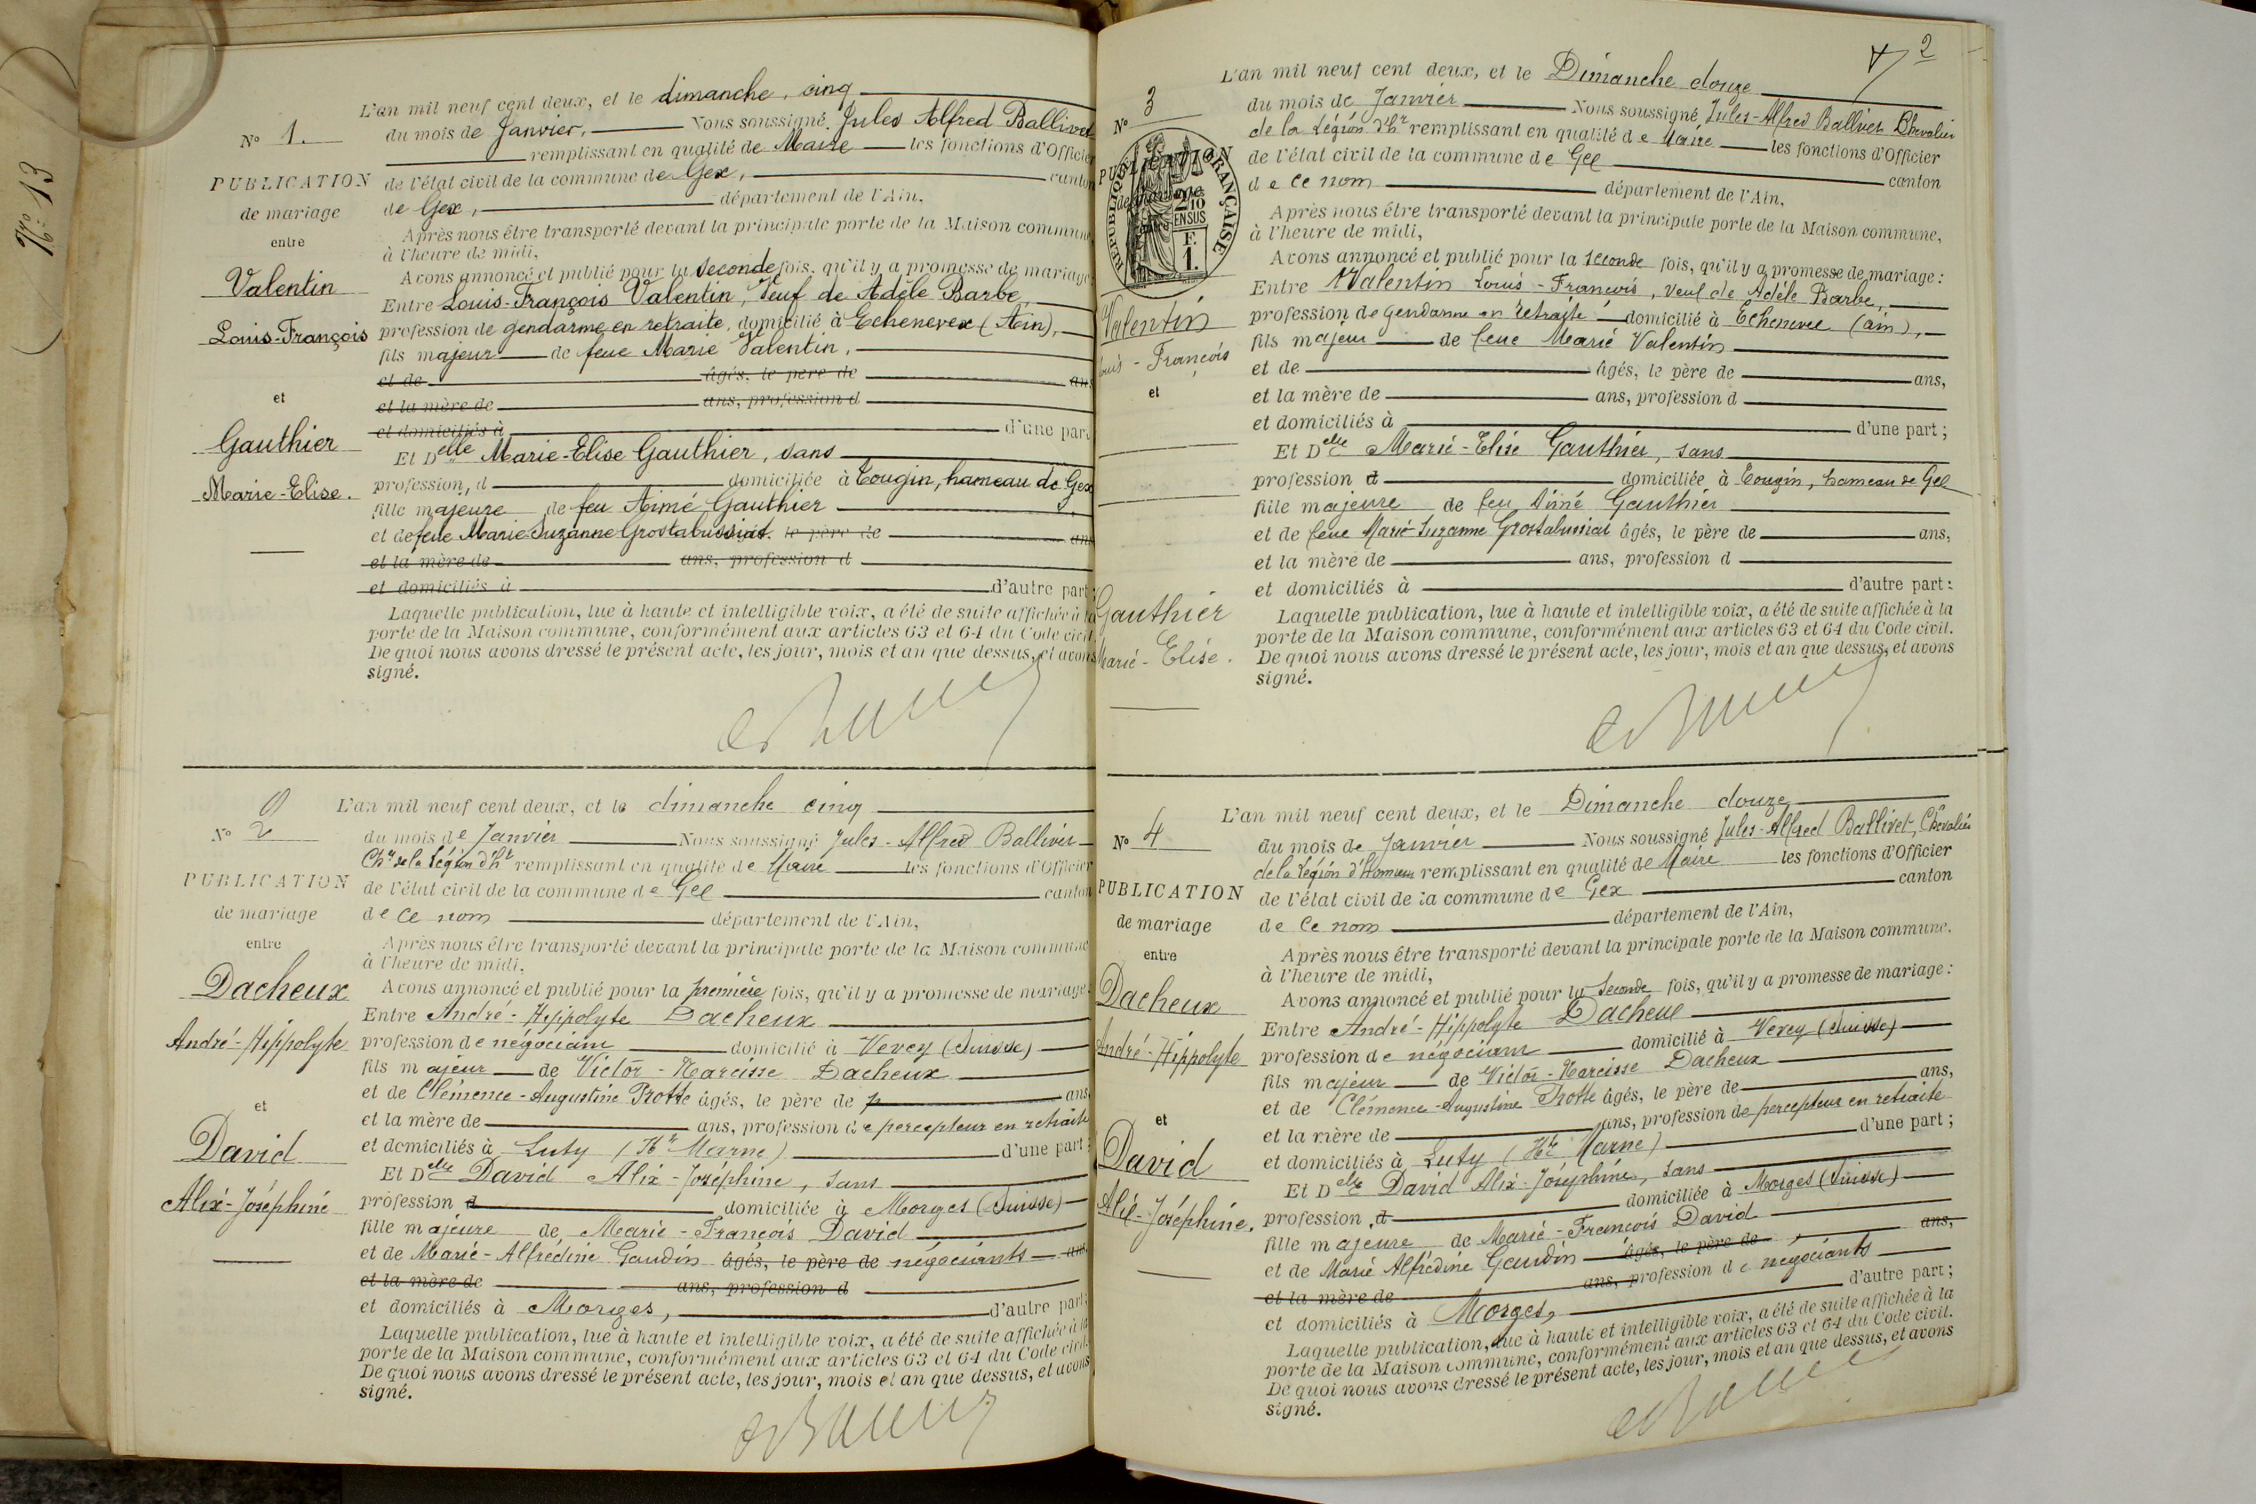 N° 13
N° 1.
PUBLICATION
de mariage
entre
Valentin
Louis-François
et
Gauthier
Marie-Elise.
L'an mil neuf cent deux, et le dimanche, cinq
du mois de Janvier, Nous soussigné, Jules Alfred Ballivet
remplissant en qualité de Maire les fonctions d'Officier
de l'état civil de la commune de Gex, canton
de Gex, département de l'Ain,
Après nous être transporté devant la principale porte de la Maison commune,
à l'heure de midi,
Avons annoncé et publié pour la seconde fois, qu'il y a promesse de mariage
Entre Louis-François Valentin, Veuf de Adèle Barbe,
profession de gendarme en retraite, domicilié à Echenevex (Ain),
fils majeur de feue Marie Valentin,
et de âgés, le père de ans
et la mère de ans, profession d
et domiciliés à d'une part
Et Delle Marie-Elise Gauthier, sans
profession, d domiciliée à Tougin, hameau de Gex
fille majeure de feu Aimé Gauthier
et de feue Marie-Suzanne Grostabussiat. le père de ans
et la mère de ans, profession d
et domiciliés à d'autre part
Laquelle publication, lue à haute et intelligible voix, a été de suite affichée à la
porte de la Maison commune, conformément aux articles 63 et 64 du Code civil.
De quoi nous avons dressé le présent acte, les jour, mois et an que dessus, et avons
signé.
N° 2
PUBLICATION
de mariage
entre
Dacheux
André-Hippolyte
et
David
Alix-Joséphine
L'an mil neuf cent deux, et le dimanche cinq
du mois de Janvier Nous soussigné Jules-Alfred Ballivet
Chr de la Légion d'hr remplissant en qualité de Maire les fonctions d'Officier
de l'état civil de la commune de Gex canton
de ce nom département de l'Ain,
Après nous être transporté devant la principale porte de la Maison commune
à l'heure de midi,
Avons annoncé et publié pour la première fois, qu'il y a promesse de mariage
Entre André-Hippolyte Dacheux
profession de négociant domicilié à Vevey (Suisse)
fils majeur de Victor-Narcisse Dacheux
et de Clémence-Augustine Trotte âgés, le père de ans
et la mère de ans, profession de percepteur en retraite
et domiciliés à Luty (Hte Marne) d'une part
Et Delle David Alix-Joséphine, sans
profession d domiciliée à Morges (Suisse)
fille majeure de Marie-François David
et de Marie-Alfrédine Gaudin âgés, le père de négociants ans
et la mère de ans, profession d
et domiciliés à Morges, d'autre part
Laquelle publication, lue à haute et intelligible voix, a été de suite affichée à la
porte de la Maison commune, conformément aux articles 63 et 64 du Code civil.
De quoi nous avons dressé le présent acte, les jour, mois et an que dessus, et avons
signé.
2
N° 3
PUBLICATION
de mariage
entre
RÉPUBLIQUE FRANÇAISE
2/10
EN SUS
F.
1.
Valentin
Louis-François
et
Gauthier
Marie-Elise.
L'an mil neuf cent deux, et le Dimanche douze
du mois de Janvier Nous soussigné Jules-Alfred Ballivet Chevalier
de la Légion d'hr remplissant en qualité de Maire les fonctions d'Officier
de l'état civil de la commune de Gex canton
de ce nom département de l'Ain,
Après nous être transporté devant la principale porte de la Maison commune,
à l'heure de midi,
Avons annoncé et publié pour la seconde fois, qu'il y a promesse de mariage:
Entre Valentin Louis-François, veuf de Adèle Barbe,
profession de gendarme en retraite domicilié à Echenevex (ain),
fils majeur de feue Marie Valentin
et de âgés, le père de ans,
et la mère de ans, profession d
et domiciliés à d'une part;
Et Delle Marie-Elise Gauthier, sans
profession d domiciliée à Tougin, hameau de Gex
fille majeure de feu Aimé Gauthier
et de feue Marie-Suzanne Grostabussiat âgés, le père de ans,
et la mère de ans, profession d
et domiciliés à d'autre part:
Laquelle publication, lue à haute et intelligible voix, a été de suite affichée à la
porte de la Maison commune, conformément aux articles 63 et 64 du Code civil.
De quoi nous avons dressé le présent acte, les jour, mois et an que dessus, et avons
signé.
N° 4
PUBLICATION
de mariage
entre
Dacheux
André-Hippolyte
et
David
Alix-Joséphine.
L'an mil neuf cent deux, et le Dimanche douze
du mois de Janvier Nous soussigné Jules-Alfred Ballivet, Chevalier
de la Légion d'Honneur remplissant en qualité de Maire les fonctions d'Officier
de l'état civil de la commune de Gex canton
de ce nom département de l'Ain,
Après nous être transporté devant la principale porte de la Maison commune.
à l'heure de midi,
Avons annoncé et publié pour la seconde fois, qu'il y a promesse de mariage:
Entre André-Hippolyte Dacheux
profession de négociant domicilié à Vevey (Suisse)
fils majeur de Victor-Narcisse Dacheux
et de Clémence-Augustine Trotte âgés, le père de ans,
et la mère de ans, profession de percepteur en retraite
et domiciliés à Luty (Hte Marne) d'une part;
Et Delle David Alix-Joséphine, sans
profession, d domiciliée à Morges (Suisse)
fille majeure de Marie-François David
et de Marie Alfrédine Gaudin âgés, le père de ans,
et la mère de ans, profession de négociants
et domiciliés à Morges, d'autre part;
Laquelle publication, lue à haute et intelligible voix, a été de suite affichée à la
porte de la Maison commune, conformément aux articles 63 et 64 du Code civil.
De quoi nous avons dressé le présent acte, les jour, mois et an que dessus, et avons
signé.